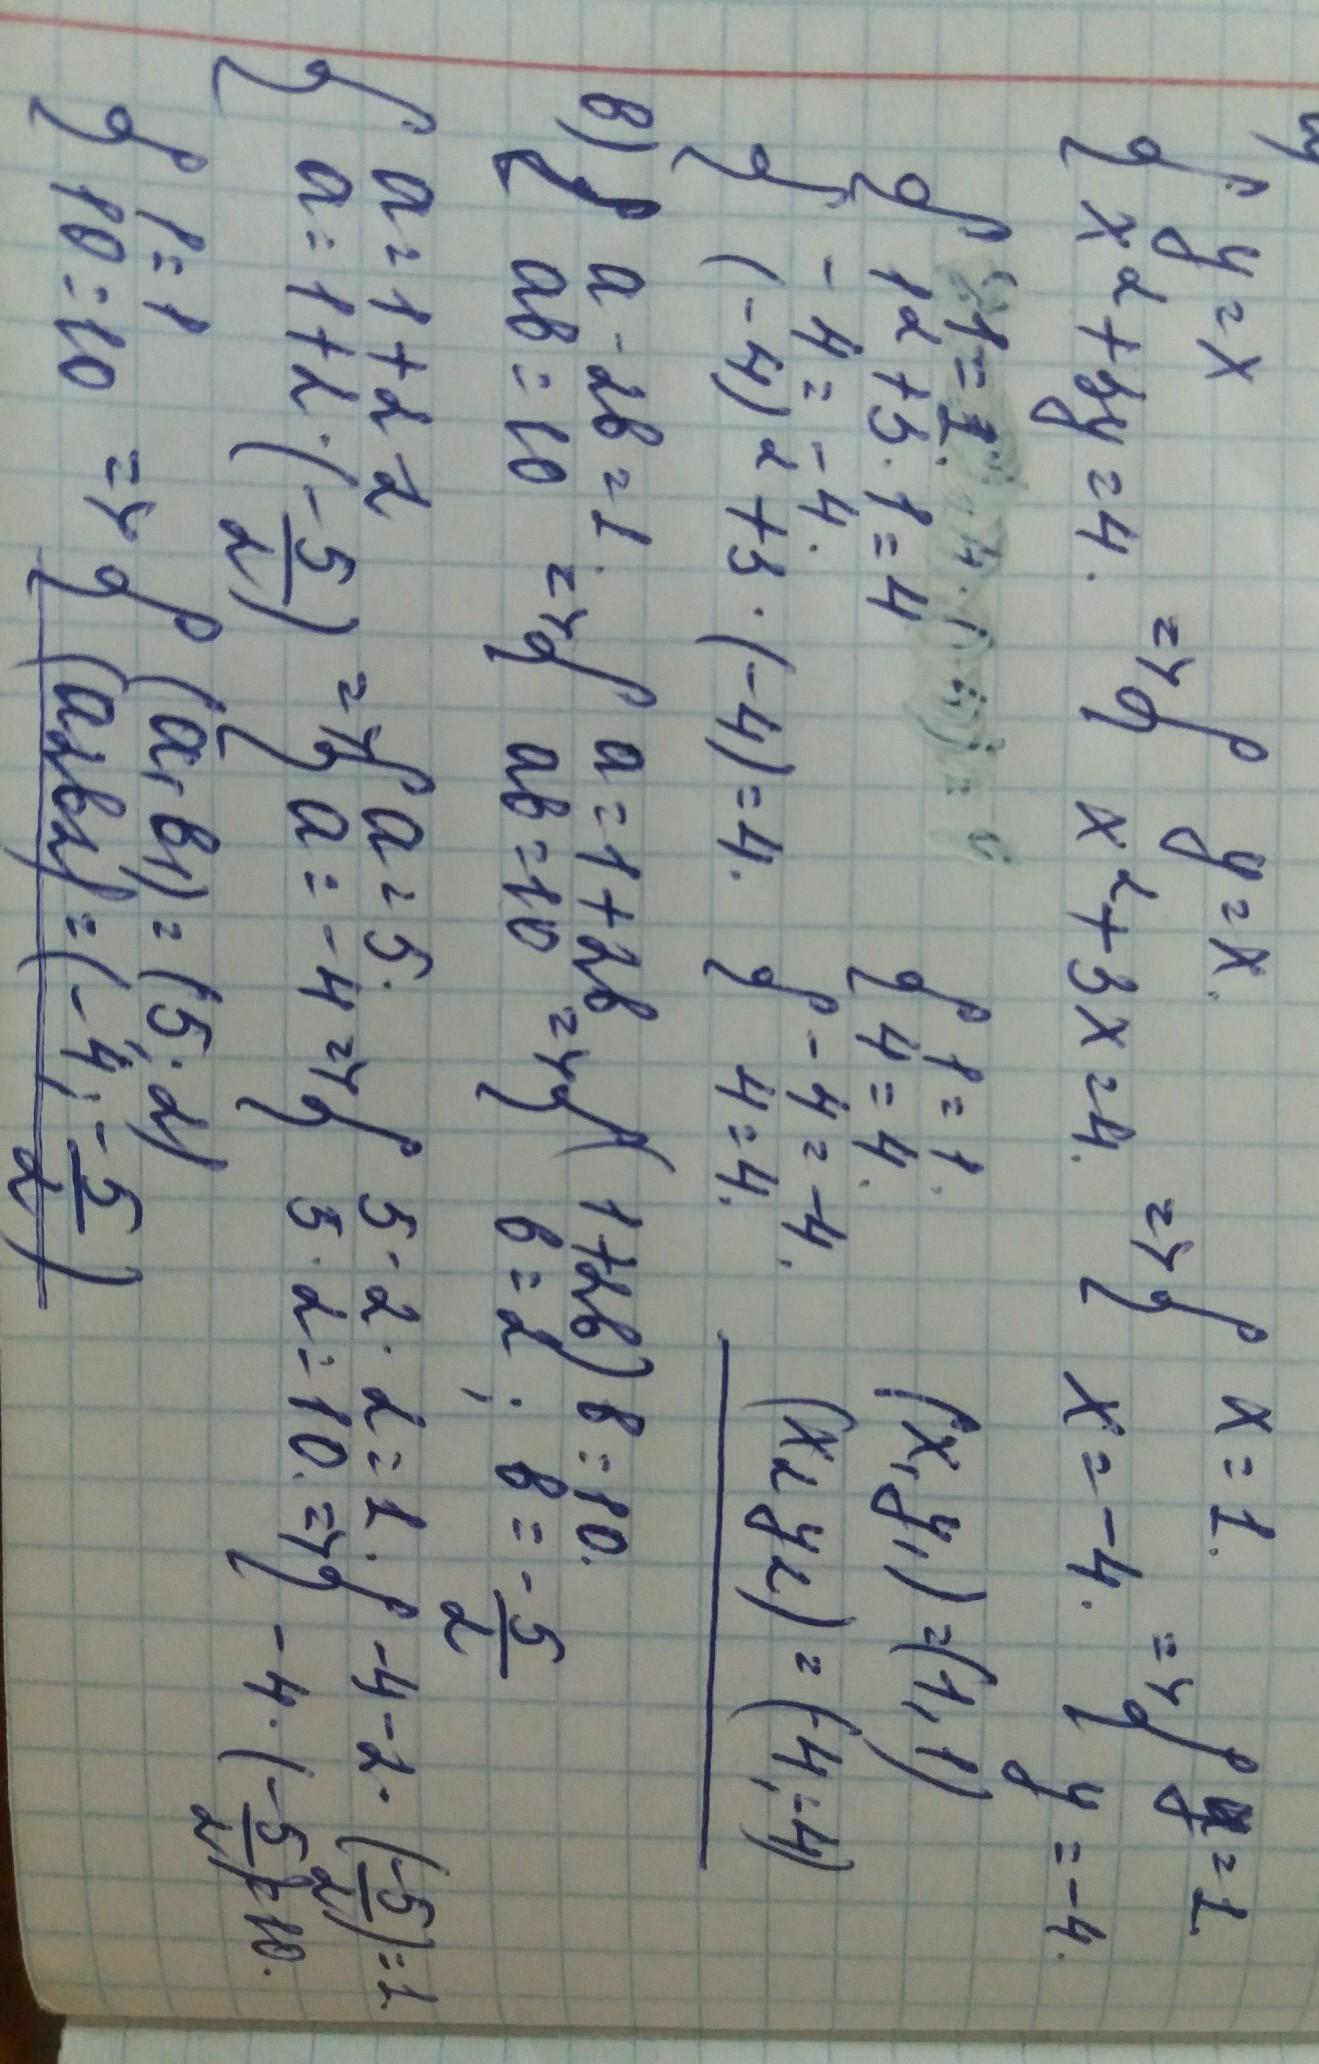 { y = x
x² + 3y = 4. => { y = x.
x² + 3x = 4. => { x = 1.
x = -4. => { y = 1.
y = -4.
{ 1 = 1.
1² + 3 · 1 = 4 { 1 = 1.
4 = 4. (x₁ y₁) = (1, 1)
{ -4 = -4.
(-4)² + 3 · (-4) = 4. { -4 = -4.
4 = 4. (x₂ y₂) = (-4, -4)
в) { a - 2в = 1.
aв = 10 => { a = 1 + 2в
aв = 10 => { (1 + 2в) в = 10.
в = 2 ; в = -5/2
{ a = 1 + 2 · 2
a = 1 + 2 · (-5/2) => { a = 5.
a = -4 => { 5 - 2 · 2 = 1.
5 · 2 = 10. => { -4 - 2 · (-5/2) = 1.
-4 · (-5/2) = 10.
{ 1 = 1
10 = 10 => { (a₁ в₁) = (5; 2)
(a₂ в₂) = (-4; -5/2)